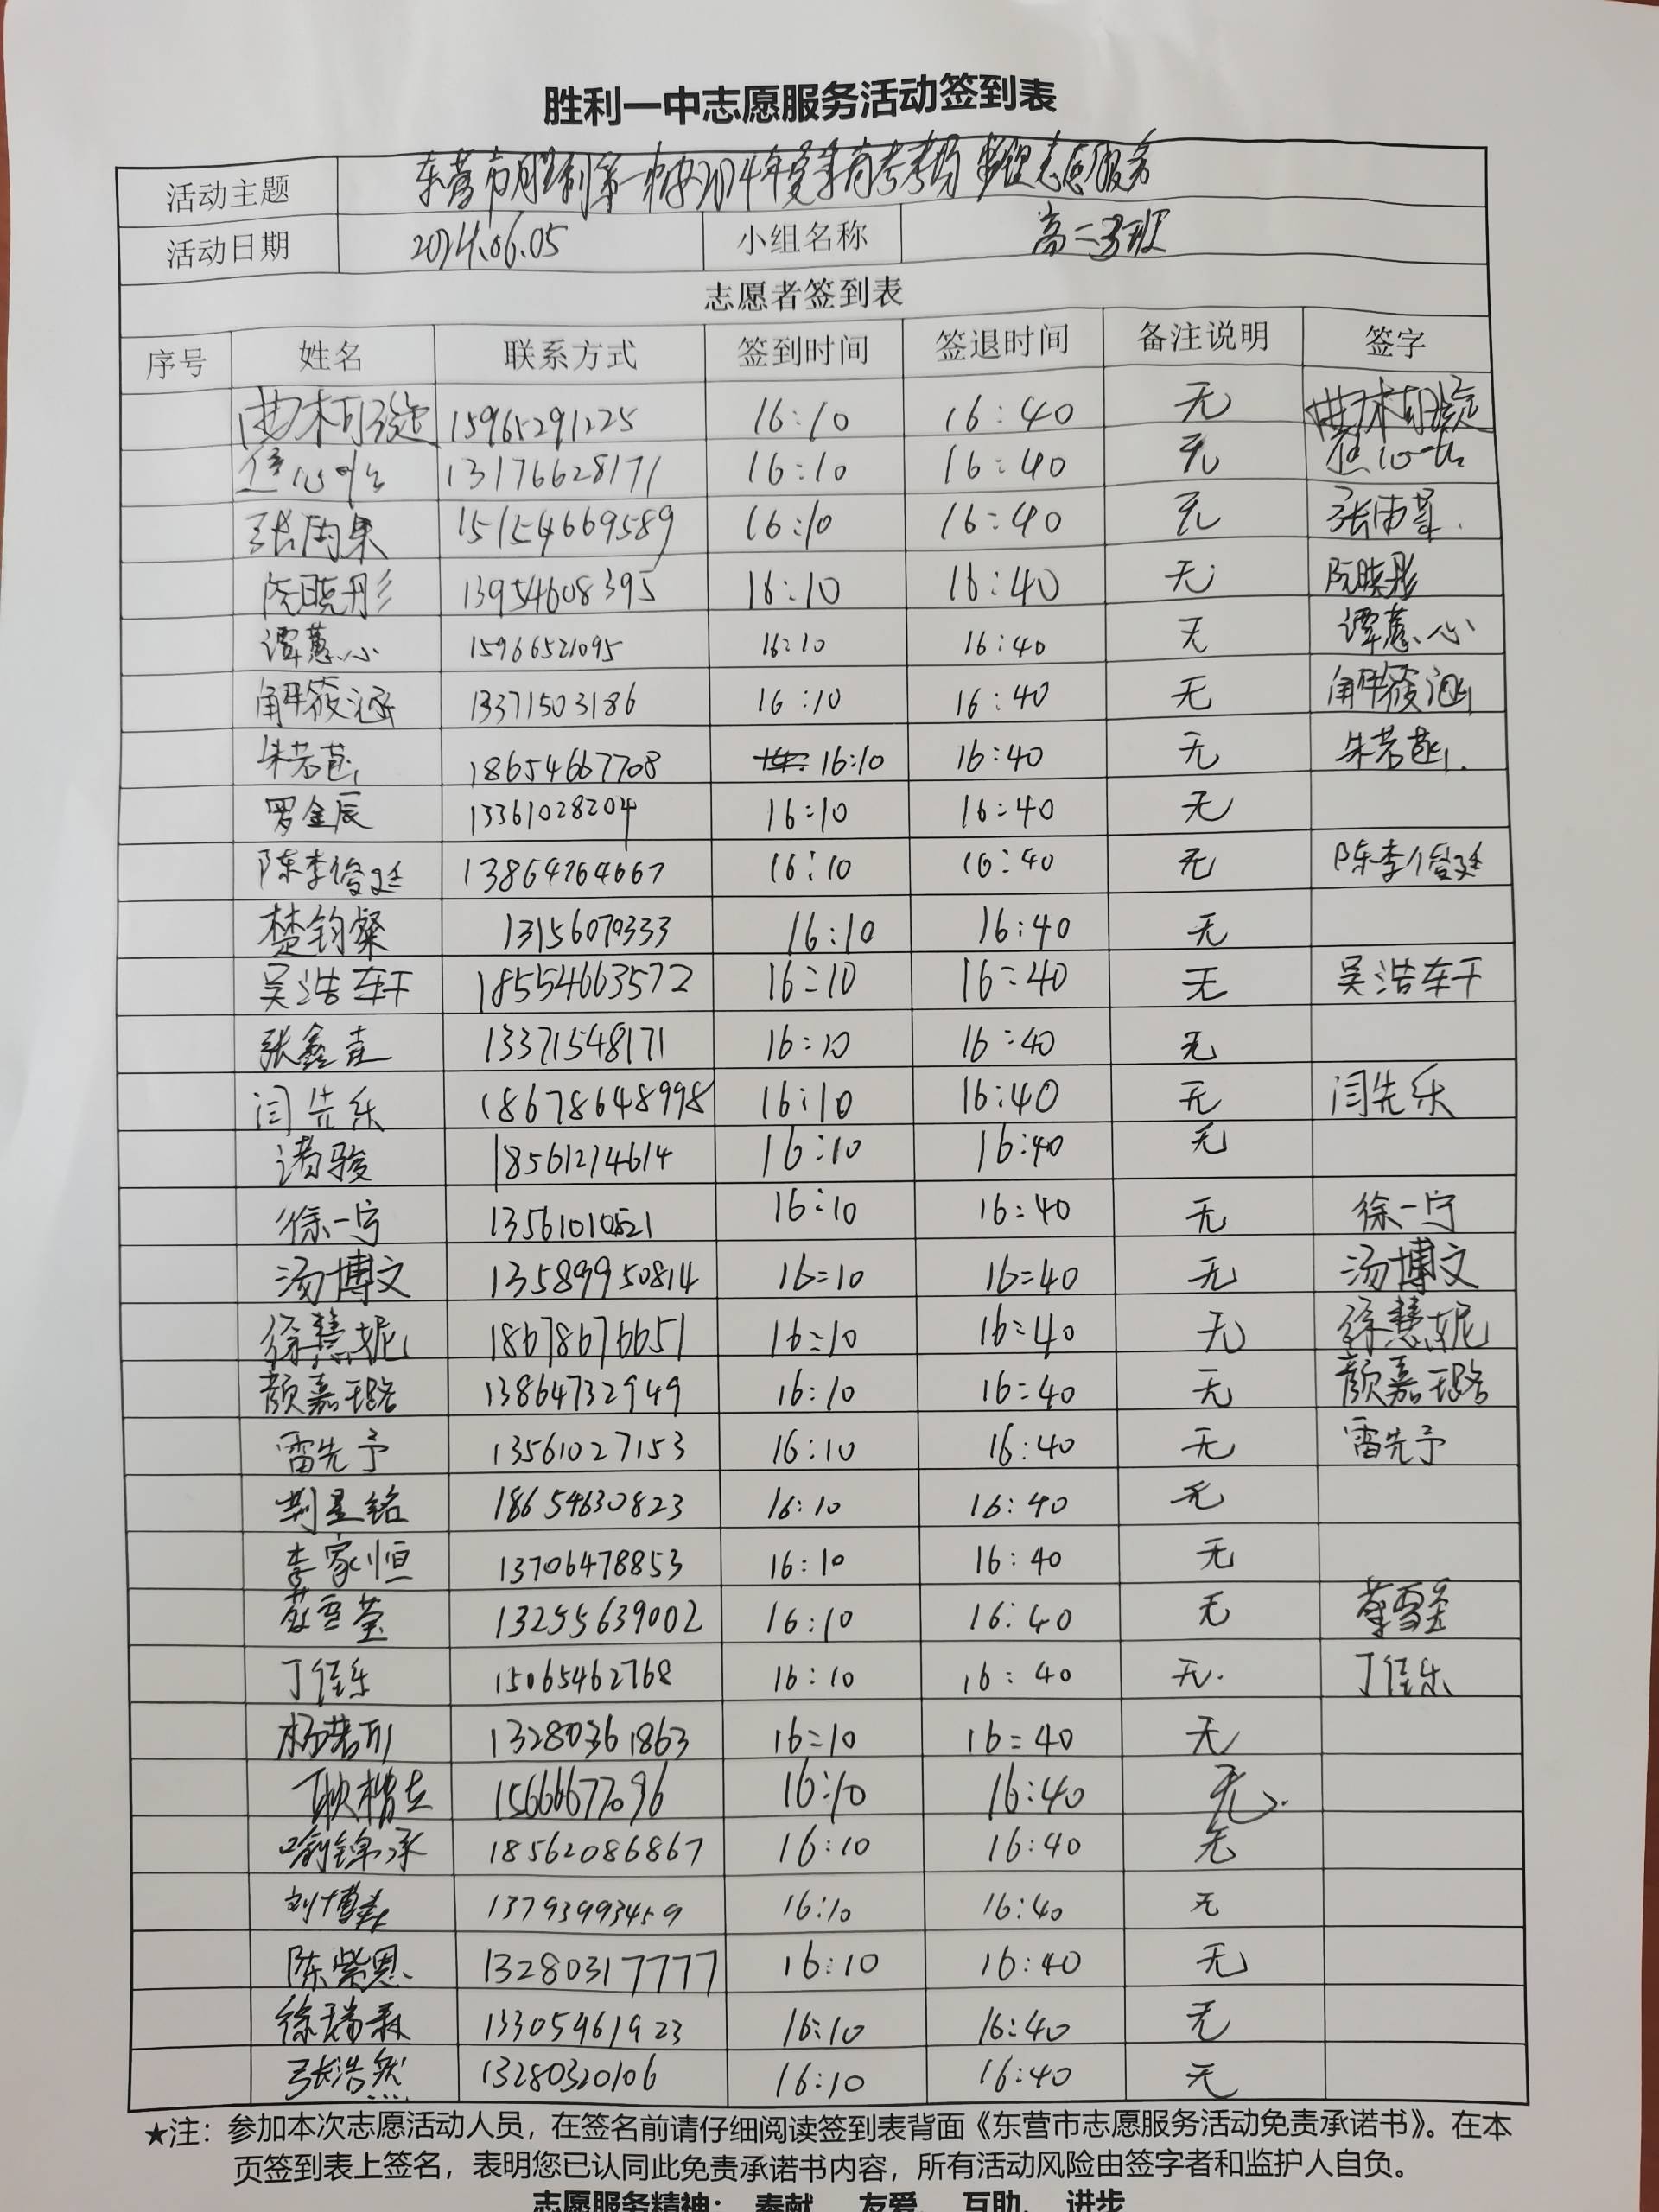 胜利一中志愿服务活动签到表
活动主题 东营市胜利第一中学2024年夏季高考考场整理志愿服务
活动日期 2024.06.05 小组名称 高二3班
志愿者签到表
序号 姓名 联系方式 签到时间 签退时间 备注说明 签字
15965291225 16:10 16:40 无
13176628171 16:10 16:40 无
15154669589 16:10 16:40 无
阮晓彤 13954608395 16:10 16:40 无 阮晓彤
谭蕙心 15966521095 16:10 16:40 无 谭蕙心
解筱涵 13371503186 16:10 16:40 无 解筱涵
朱若菡 18654667708 16:10 16:40 无 朱若菡
罗金辰 13361028204 16:10 16:40 无
陈李俊廷 13864764667 16:10 16:40 无 陈李俊廷
楚钧粲 13156079333 16:10 16:40 无
吴浩轩 18554663572 16:10 16:40 无 吴浩轩
张鑫垚 13371548171 16:10 16:40 无
闫先乐 18678648998 16:10 16:40 无 闫先乐
诸骏 18561214614 16:10 16:40 无
徐一宁 13561010521 16:10 16:40 无 徐一宁
汤博文 13589950814 16:10 16:40 无 汤博文
徐慧妮 18678676651 16:10 16:40 无 徐慧妮
颜嘉璐 13864732949 16:10 16:40 无 颜嘉璐
雷先予 13561027153 16:10 16:40 无 雷先予
荆星铭 18654630823 16:10 16:40 无
李家恒 13706478853 16:10 16:40 无
13255639002 16:10 16:40 无
丁佳乐 15065462768 16:10 16:40 无. 丁佳乐
13280361863 16:10 16:40 无
15666677096 16:10 16:40 无.
喻锦承 18562086867 16:10 16:40 无
13793993459 16:10 16:40 无
陈紫恩 13280317777 16:10 16:40 无
13305461923 16:10 16:40 无
张浩然 13280320106 16:10 16:40 无
★注：参加本次志愿活动人员，在签名前请仔细阅读签到表背面《东营市志愿服务活动免责承诺书》。在本
页签到表上签名，表明您已认同此免责承诺书内容，所有活动风险由签字者和监护人自负。
志愿服务精神： 奉献、 友爱、 互助、 进步